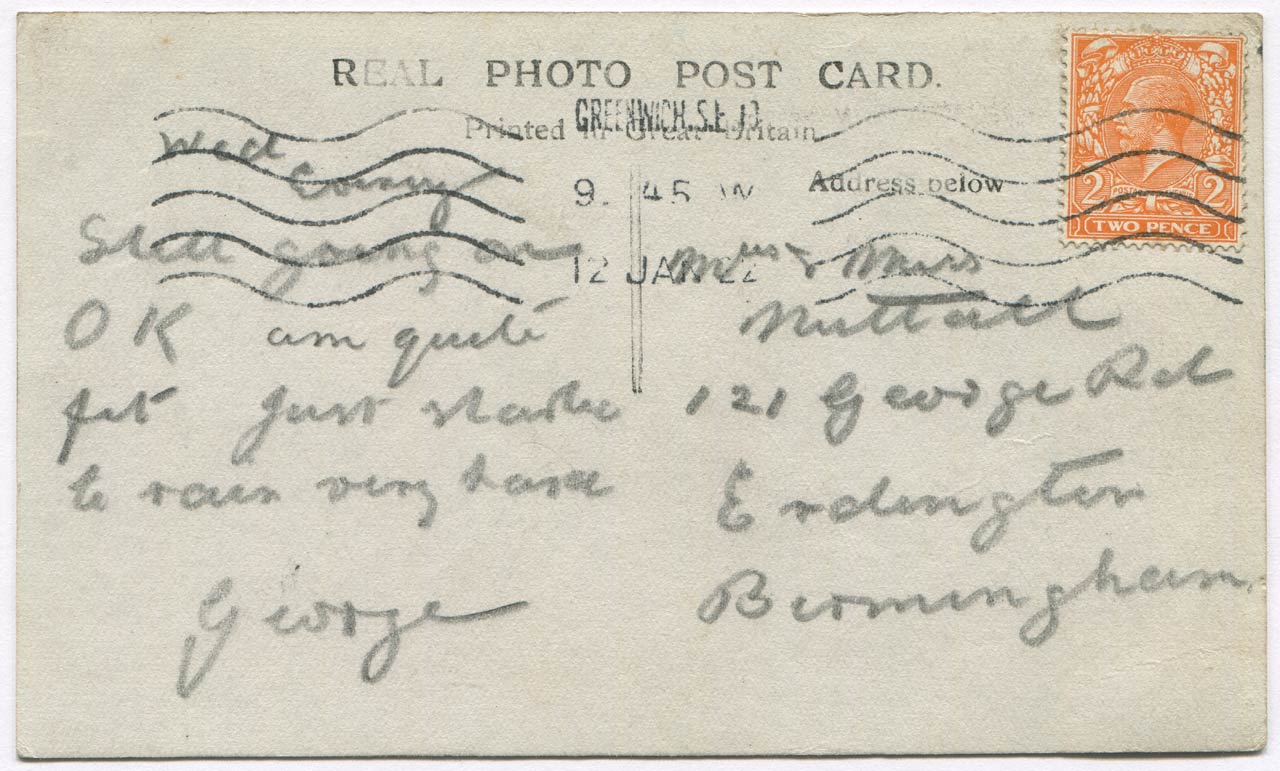 REAL PHOTO POST CARD.
GREENWICH. S.E.10
Printed in Great Britain
Address below
9. 45
12 JAN 22
TWO PENCE
2 2
Wed
Still going on
OK am quite
fit Just started
to rain very hard
George
Mrs & Miss
Nuttall
121 George Rd
Erdington
Birmingham